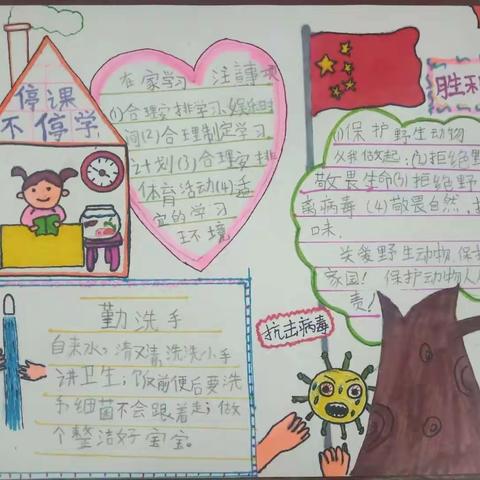 停课
不停学
在家学习 注意事项
(1)合理安排学习、娱乐时
间(2)合理制定学习
计划(3)合理安排
体育活动(4)适
宜的学习
环境
胜利
(1)保护野生动物
从我做起;(2)拒绝野
敬畏生命(3)拒绝野
离病毒(4)敬畏自然,
口味.
关爱野生动物 保护
家园! 保护动物人人
责!
勤洗手
自来水,清又清,洗洗小手
讲卫生;饭前便后要洗
手细菌不会跟着走;做
个整洁好宝宝。
抗击病毒